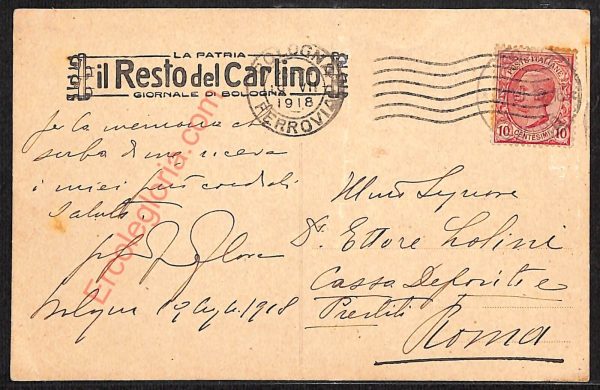 LA PATRIA
il Resto del Carlino
GIORNALE DI BOLOGNA
BOLOGNA
VII
1918
FERROVIA
POSTE ITALIANE
10 CENTESIMI 10
Ercolegloria.com
Per la memoria che
serba di me riceva
i miei più cordiali
saluti
Bologna 19 luglio 1918
Illmo Signore
Dr. Ettore Lolini
Cassa Depositi e
Prestiti
Roma